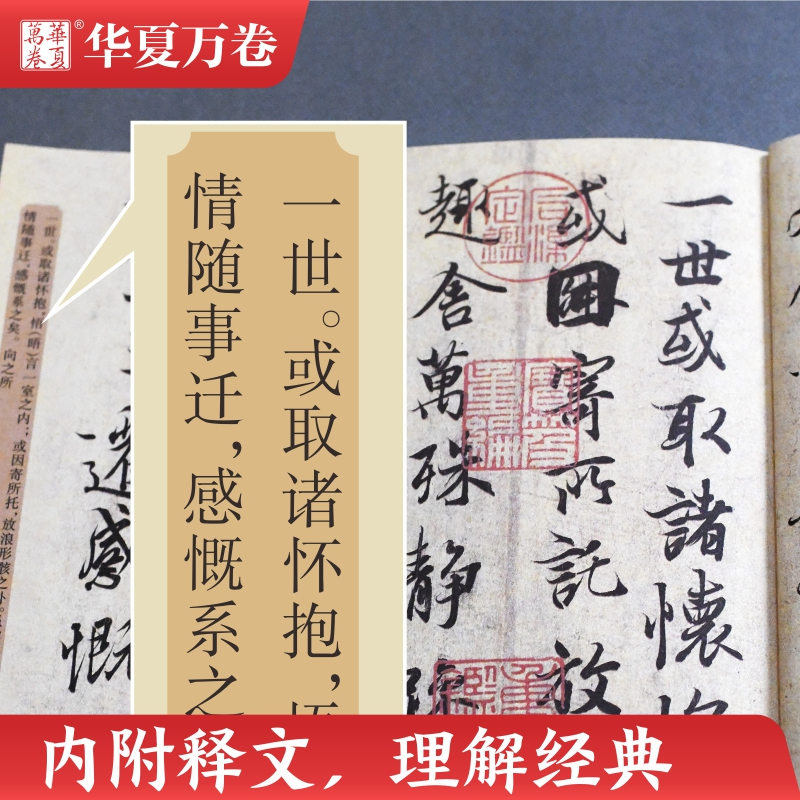 華夏萬卷®
华夏万卷
一世。或取诸怀抱，
情随事迁，感慨系之
一世。或取诸怀抱，悟（晤）言一室之内；或因寄所托，放浪形骸之外。
情随事迁，感慨系之矣。向之所
一世或取諸懷抱
或因寄所託放
趣舍萬殊靜
遷感慨
内附释文，理解经典